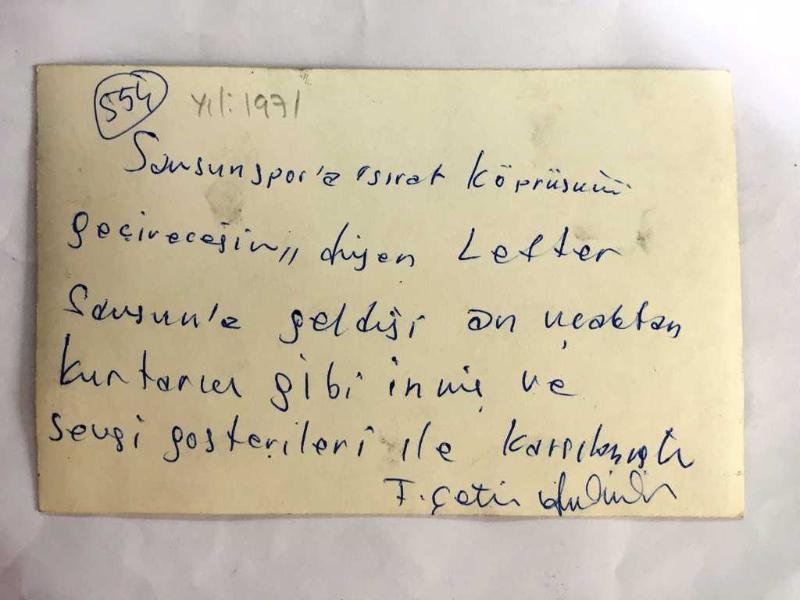 554 Yıl: 1971
Samsunspor'a "sırat köprüsünü
geçireceğim,, diyen Lefter
Samsun'a geldiği an uçaktan
kurtarıcı gibi inmiş ve
sevgi gösterileri ile karşılanmıştı
F. Çetin